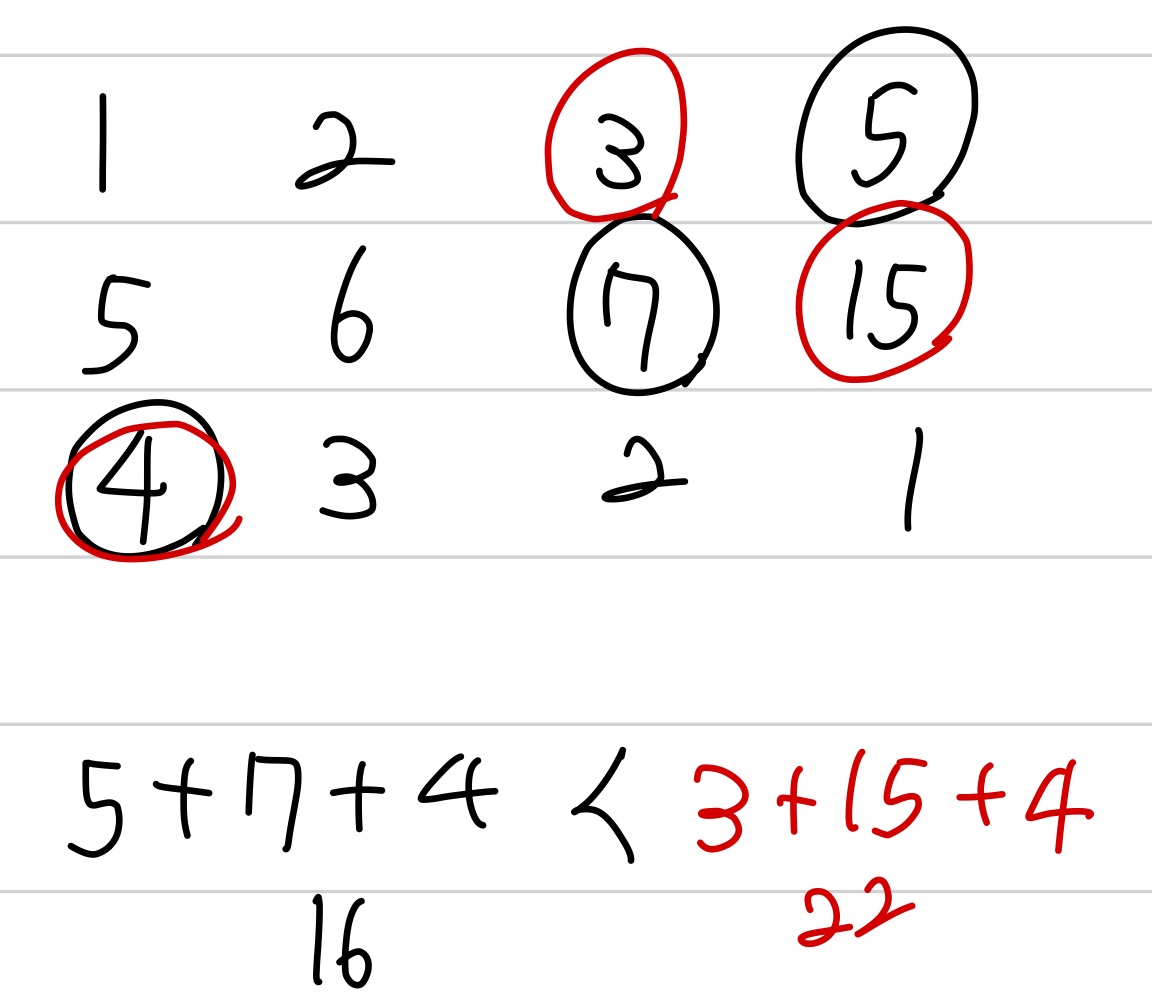 1 2 3 5
5 6 7 15
4 3 2 1
5+7+4 < 3+15+4
16 22